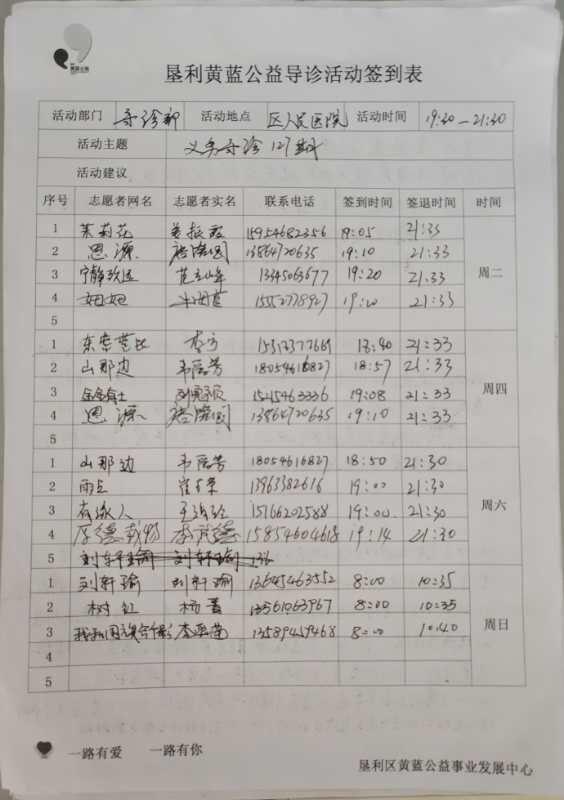 垦利黄蓝公益导诊活动签到表
活动部门 导诊部 活动地点 区人民医院 活动时间 19:30—21:30
活动主题 义务导诊127期
活动建议
序号 志愿者网名 志愿者实名 联系电话 签到时间 签退时间 时间
1 茉莉花 15954682356 19:05 21:33
2 思源 13864720635 19:10 21:33
3 宁静致远 19:20 21:33
4 妞妞 21:33
周二
5
1 李方 18:40 21:33
2 山那边 18054616827 18:57 21:33
3 15215463336 19:08 21:33
4 思源 13864720635 19:10 21:33
周四
5
1 山那边 18054616827 18:50 21:30
2 雨点 13963382616 19:00 21:30
3 有缘人 15166202588 19:00 21:30
4 厚德载物 李武德 15854604618 19:14 21:30
周六
5
1 刘轩瑜 刘轩瑜 13645463552 8:00 10:35
2 树红 杨青 13561063967 8:00 10:35
3 13589459468 8:00 10:40
周日
4
5
一路有爱 一路有你
垦利区黄蓝公益事业发展中心